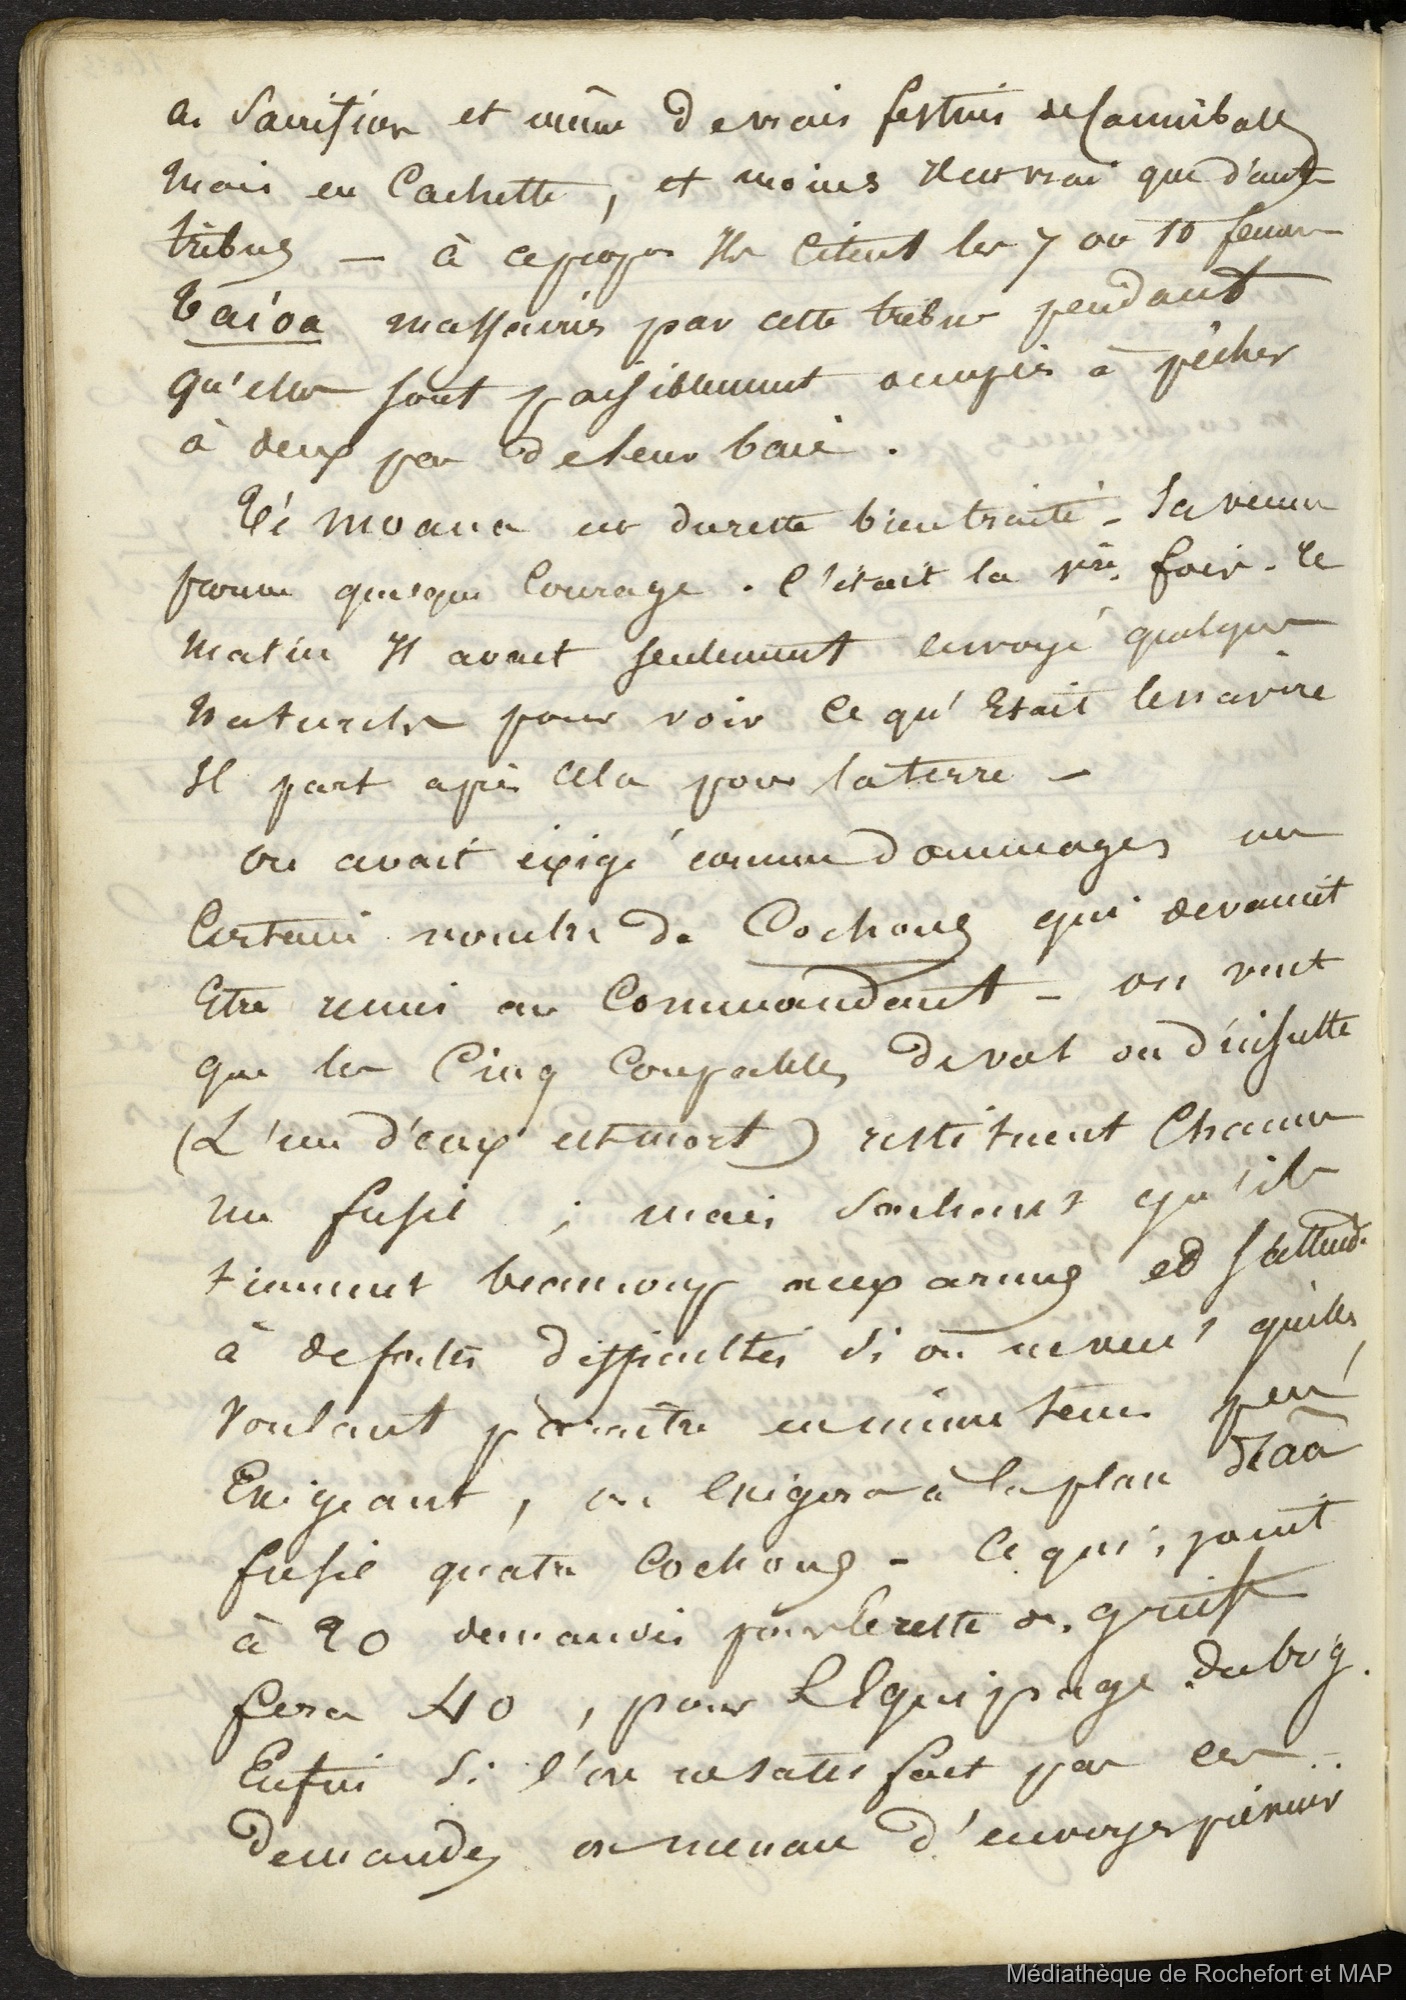 de Sacrifier et même de vrais festins de Cannibales
Mais en Cachette, et moins Il est vrai que d'autres
tribus — à ce propos Ils citent les 7 ou 10 femmes
Taioa massacrées par cette tribu pendant
qu'elles sont paisiblement occupées à pêcher
à deux pas de leur baie.
Té moana est du reste bien traité - Sa venue
prouve quelque Courage. C'était la 1ère fois. Le
Matin Il avait seulement envoyé quelques
Naturels pour voir Ce qu'Etait le navire
Il part après Cela pour la terre —
on avait éxigé comme dommages un
Certain nombre de Cochons qui devaient
Etre remis au Commandant - on veut
que les Cinq Coupables de vol ou d'insulte
(L'un d'eux est mort) restituent Chacun
un fusil ; mais Sachant qu'ils
tiennent beaucoup aux armes et s'attend.
à de fortes difficultés Si on ne veut qu'elles,
Voulant paraître en même tems peu
Exigeant, on Exigera à la place d'un
fusil quatre Cochons - Ce qui, joint
à 20 demandés pour le reste des griefs
fera 40, pour L'Equipage du brig.
Enfin Si l'on ne satisfait pas ces
Demandes on menace d'envoyer prévenir